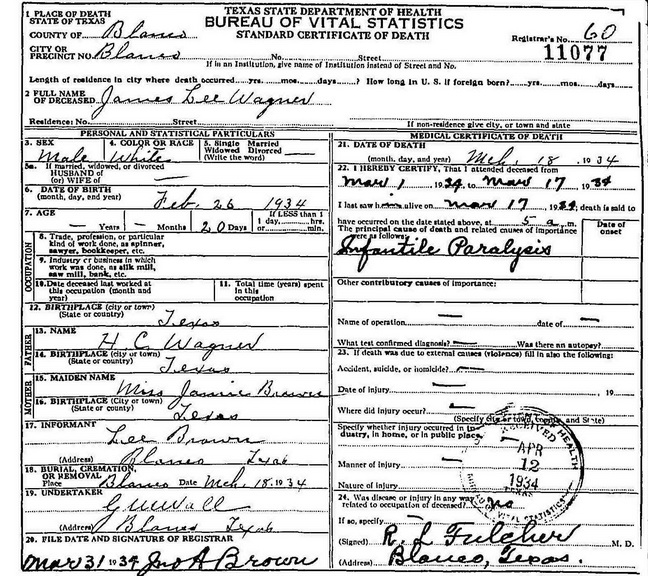 TEXAS STATE DEPARTMENT OF HEALTH
BUREAU OF VITAL STATISTICS
STANDARD CERTIFICATE OF DEATH
1 PLACE OF DEATH
STATE OF TEXAS
COUNTY OF Blanco
CITY OR
PRECINCT NO. Blanco No. Street
Registrar's No. 60
11077
If in an Institution, give name of Institution instead of Street and No.
Length of residence in city where death occurred yrs. mos. days ? How long in U. S. if foreign born? yrs. mos. days.
2 FULL NAME
OF DECEASED James Lee Wagner
Residence: No. Street
If non-residence give city, or town and state
PERSONAL AND STATISTICAL PARTICULARS
3. SEX 4. COLOR OR RACE 5. Single Married
Widowed Divorced
(Write the word)
Male White
5a. If married, widowed, or divorced
HUSBAND of
(or) WIFE of
6. DATE OF BIRTH
(month, day, end year) Feb. 26 1934
7. AGE If LESS than 1
— Years — Months 20 Days 1 day, hrs.
or min.
OCCUPATION
8. Trade, profession, or particular
kind of work done, as spinner,
sawyer, bookkeeper, etc.
9. Industry or business in which
work was done, as silk mill,
saw mill, bank, etc.
10. Date deceased last worked at
this occupation (month and
year)
11. Total time (years) spent
in this
occupation
12. BIRTHPLACE (city or town)
(State or country) Texas
FATHER
13. NAME
H. C. Wagner
14. BIRTHPLACE (city or town)
(State or country) Texas
MOTHER
15. MAIDEN NAME
Miss Jannie Brown
16. BIRTHPLACE (City or town)
(State or country) Texas
17. INFORMANT
Lee Brown
(Address) Blanco Texas
18. BURIAL, CREMATION,
OR REMOVAL
Place Blanco Date Mch. 18. 1934
19. UNDERTAKER
(Address) Blanco Texas
20. FILE DATE AND SIGNATURE OF REGISTRAR
Mar 31 1934 Jno A Brown
MEDICAL CERTIFICATE OF DEATH
21. DATE OF DEATH
(month, day, and year) Mch. 18, 1934
22. I HEREBY CERTIFY, That I attended deceased from
Mar 1 1934 to Mar 17 1934
I last saw h alive on Mar 17 1934; death is said to
have occurred on the date stated above, at 5 a. m.
The principal cause of death and related causes of importance
were as follows:
Date of
onset
Infantile Paralysis
Other contributory causes of importance:
Name of operation — date of —
What test confirmed diagnosis? — Was there an autopsy?
23. If death was due to external causes (violence) fill in also the following:
Accident, suicide, or homicide? —
Date of injury — , 19
Where did injury occur? —
(Specify city or town, county, and State)
Specify whether injury occurred in industry, in home, or in public place
Manner of injury
Nature of injury
RECEIVED
APR
12
1934
TEXAS
BUREAU OF VITAL STATISTICS
24. Was disease or injury in any way
related to occupation of deceased? no
If so, specify
(Signed) R. L Fulcher M. D.
(Address) Blanco, Texas.